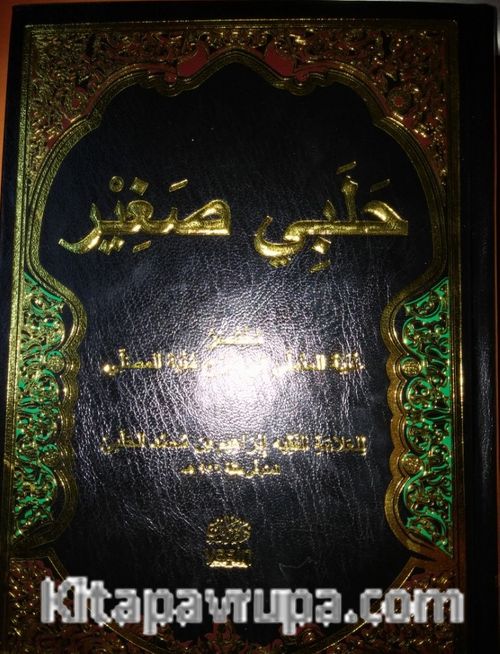 حَلَبِي صَغِيْر
مختصر
غنية المتملي في شرح منية المصلي
للعلامة الفقيه إبراهيم بن محمد الحلبي
Kitapavrupa.com